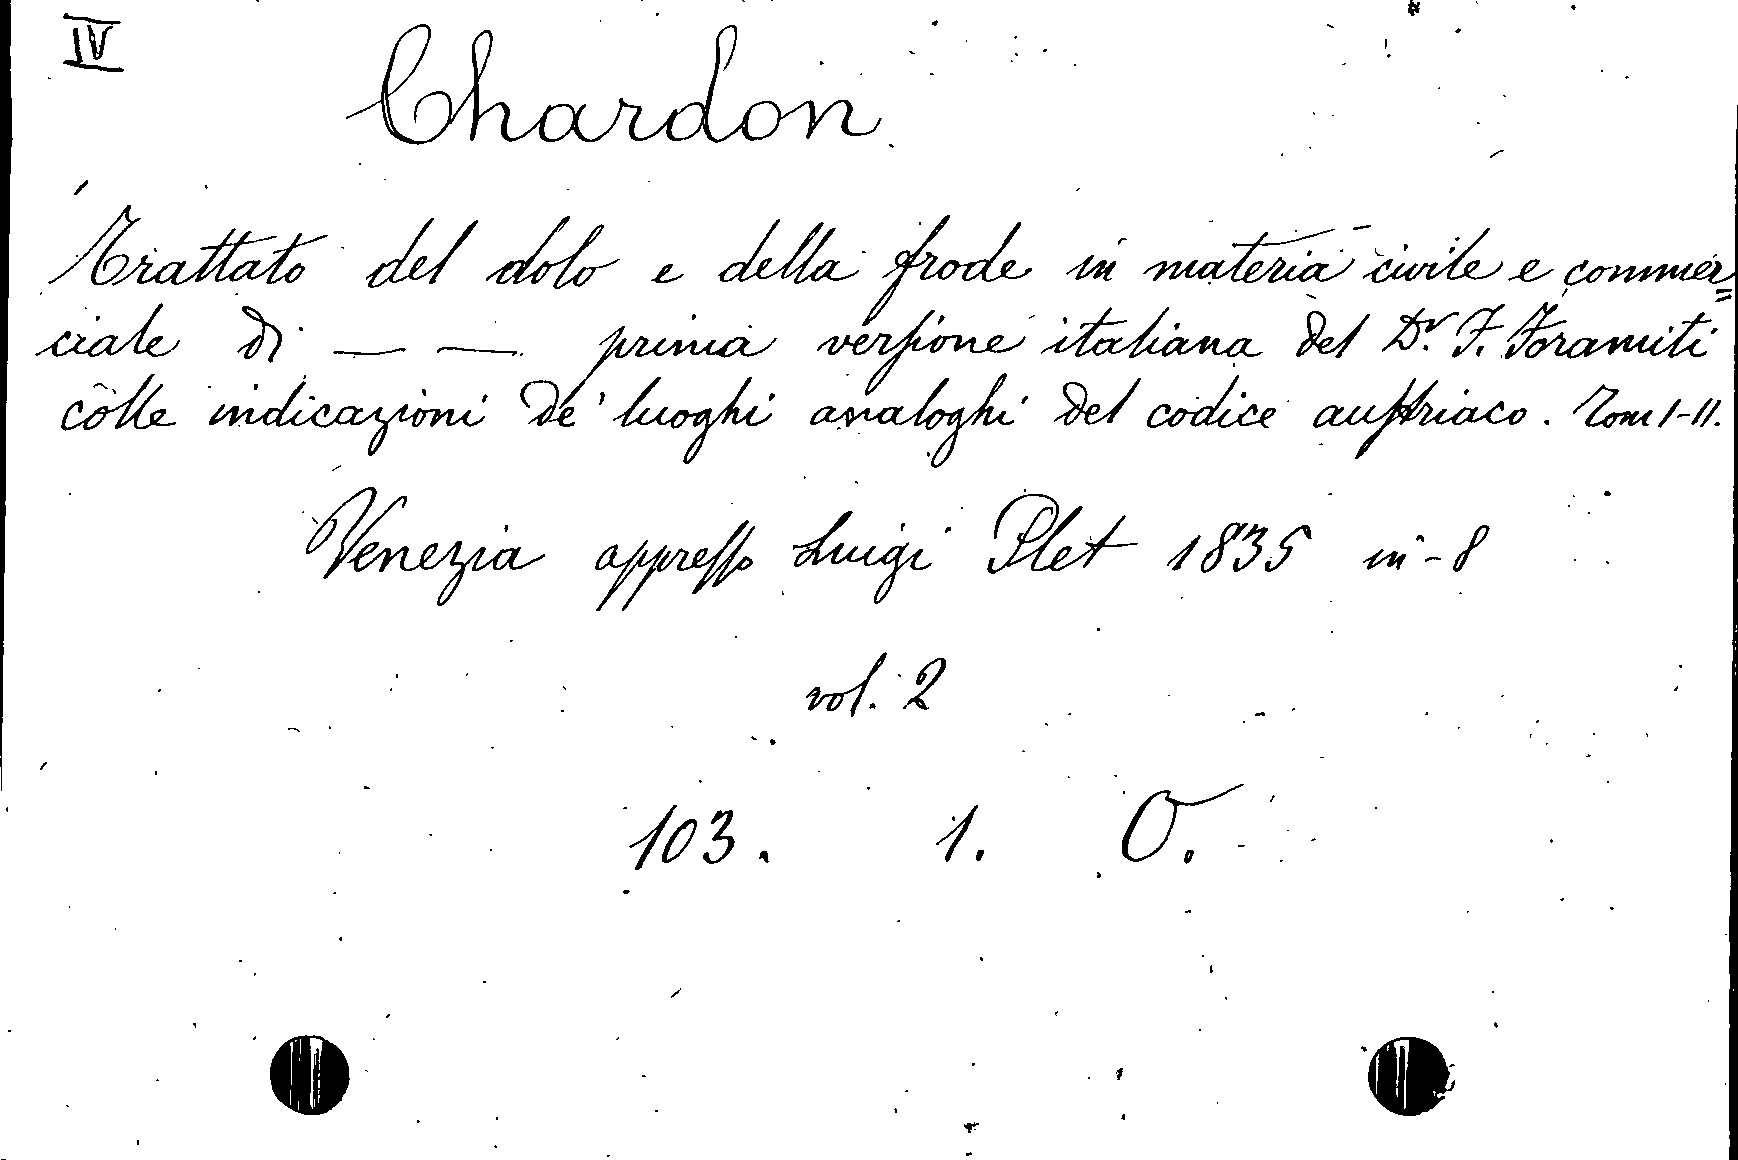 IV
Chardon
Trattato del dolo e della frode in materia civile e commer=
ciale di — — prima versione italiana del Dr. F. Foramiti
colle indicazioni de' luoghi analoghi del codice austriaco. Tom I-II.
Venezia appresso Luigi Plet 1835 in-8
vol. 2
103. 1. O.